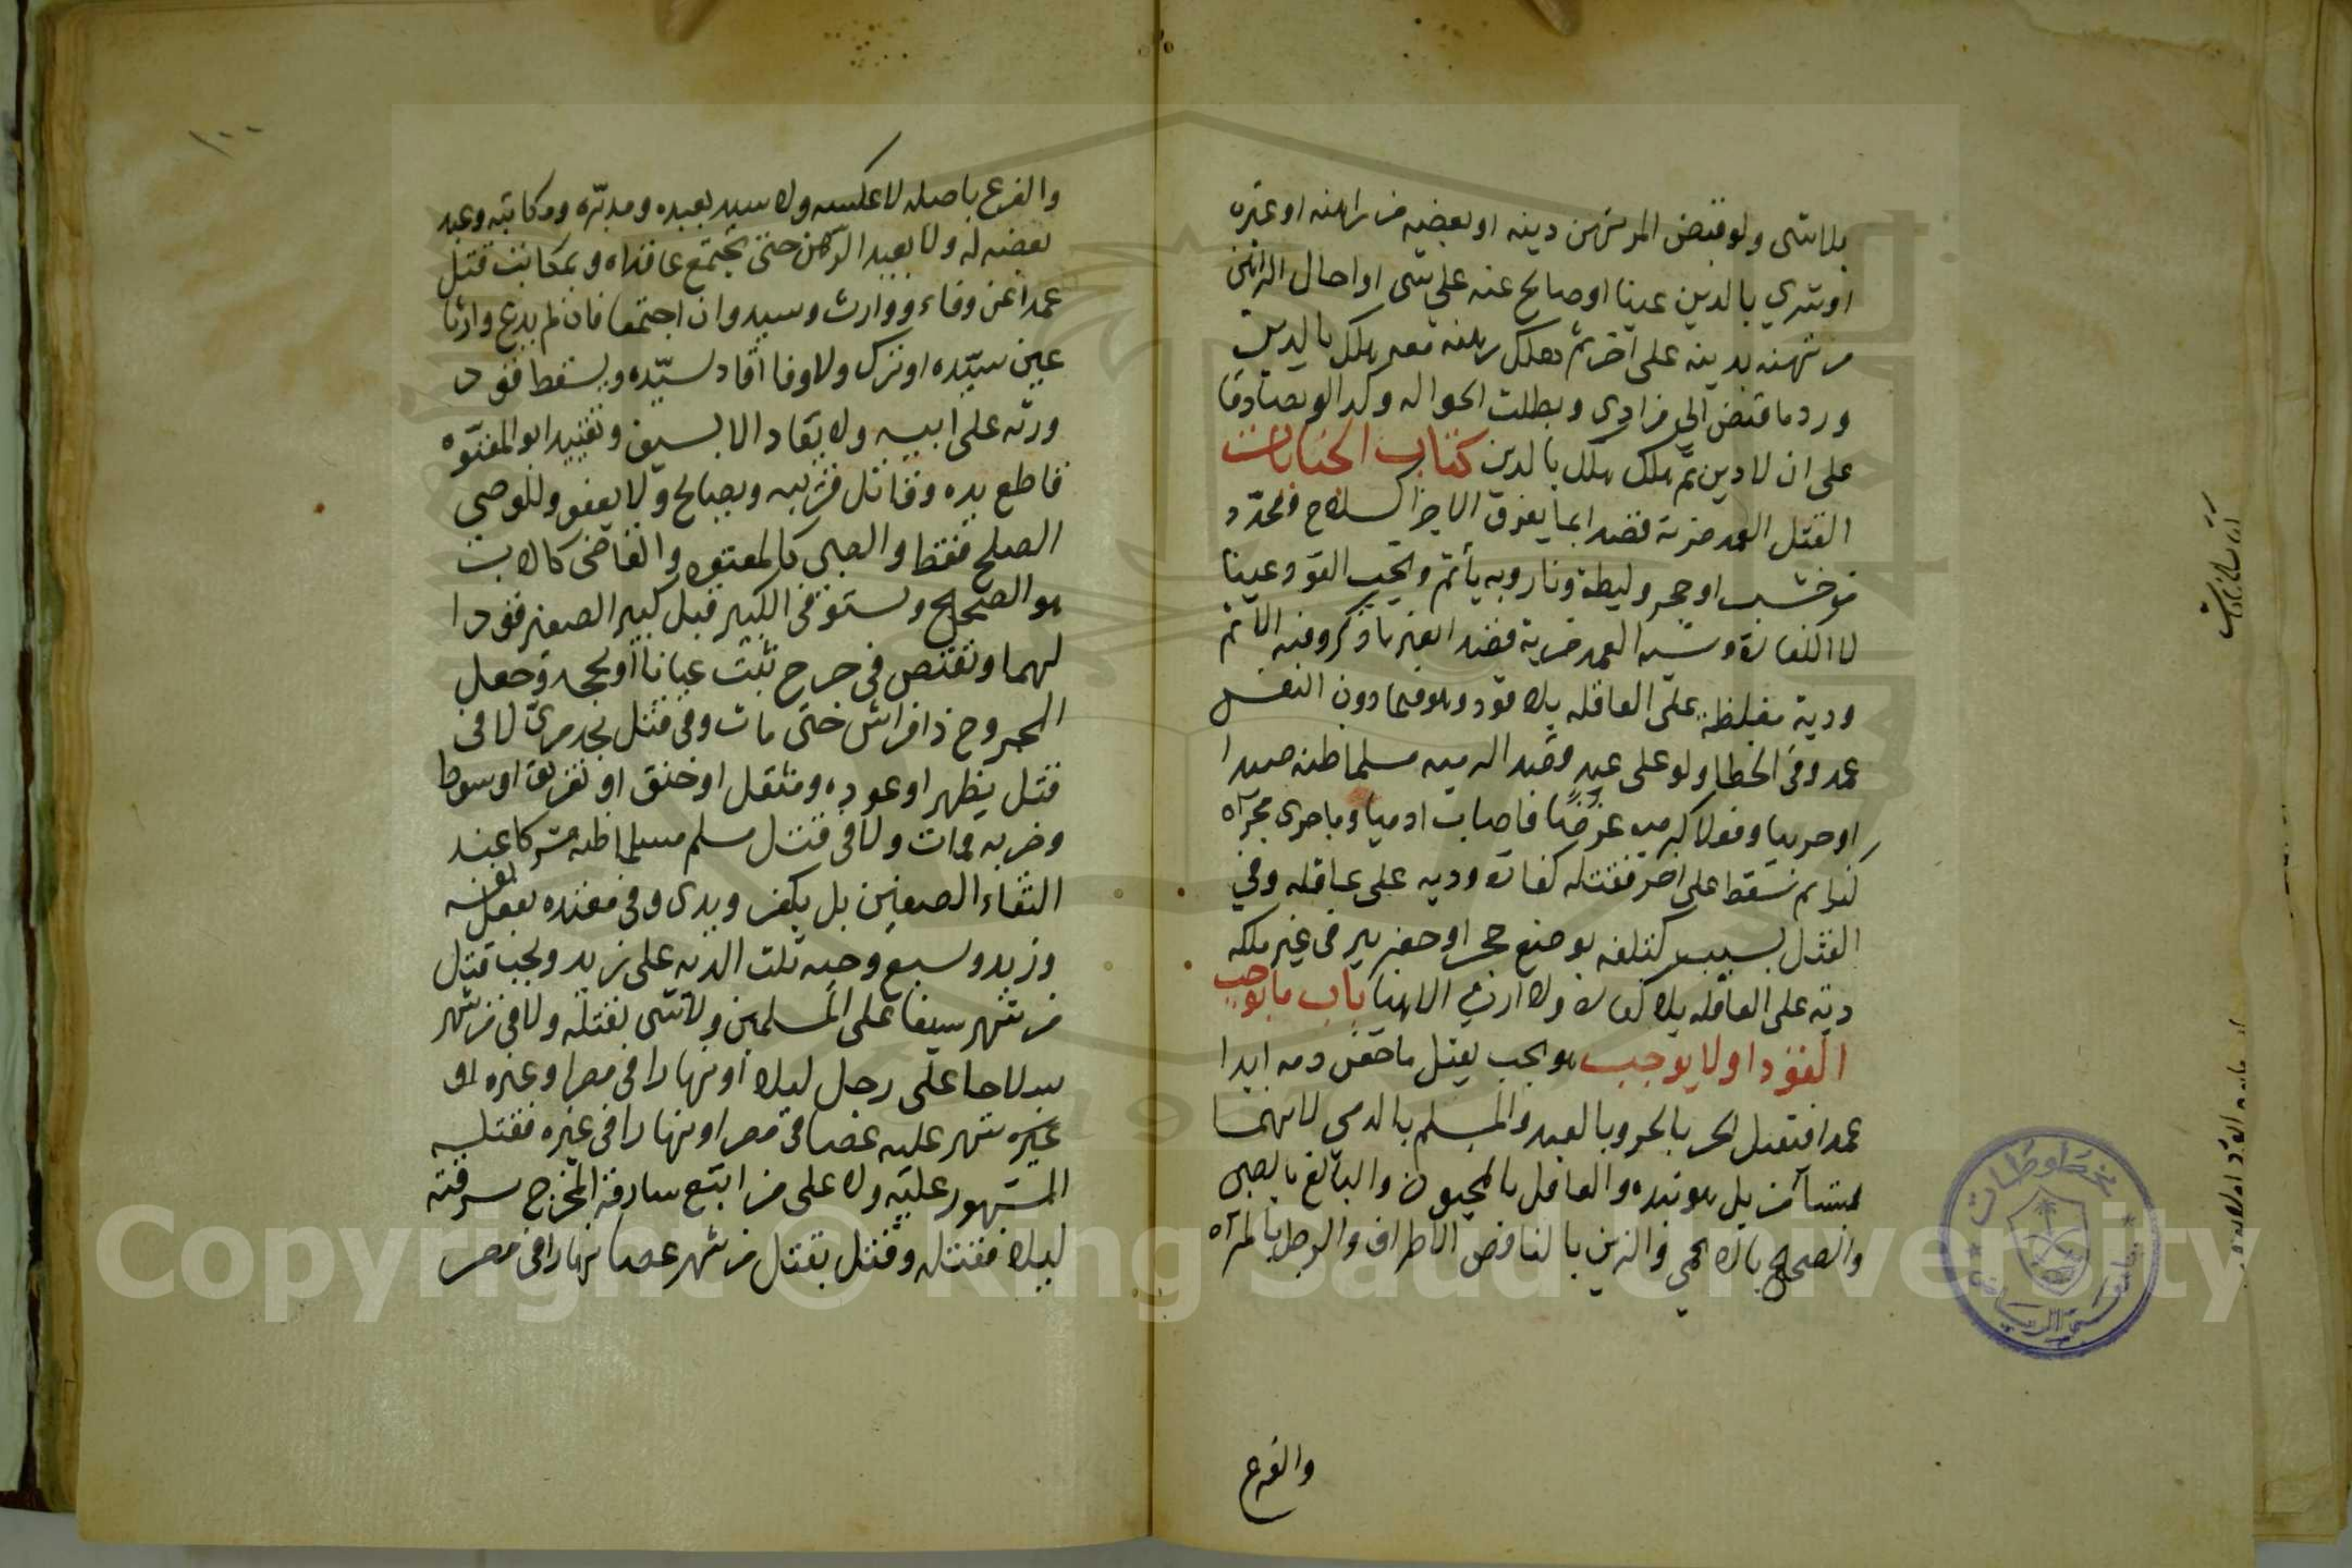 بلا شي ولو قبض المرتهن دينه او بعضه من راهنه او غيره
او شري بالدين عينا او صالح عنه على شي او احال الراهن
مرتهنه بدينه على اخر ثم هلك رهنه معه هلك بالدين
ورد ما قبض الى من ادى وبطلت الحواله وكذا لو تصادقا
على ان لا دين ثم هلك هلك بالدين كتاب الجنايات
القتل العمد ضربه قصدا بما يفرق الاجزا كسلاح ومحدد
من خشب او حجر وليطة ونار وبه يأثم ويجب القود عينا
لا الكفارة وشبه العمد ضربه قصدا بغير ما ذكر وفيه الاثم
ودية مغلظة على العاقله بلا قود وهو فيما دون النفس
عمد وفي الخطا ولو على عبد قصدا كرميه مسلما ظنه صيدا
او حربيا وفعلا كرميه غرضا فاصاب ادميا وما جرى مجراه
كنوايم سقط على اخر فقتله كفارة وديه على عاقله وفي
القتل بسبب كتلفه بوضع حجر او حفر بير في غير ملكه
دية على العاقله بلا كفارة ولا ارث الا هنا باب ما يوجب
القود او لا يوجب هو يجب بقتل ما حقن دمه ابدا
عمدا فيقتل الحر بالحر وبالعبد والمسلم بالذمي لا هما
بمستأمن بل هو بنده والعاقل بالمجنون والبالغ بالصبي
والصحيح بالاعمى والزمن بالناقص الاطراف والرجل بالمرأه
والفرع
١٠٠
والفرع باصله لا عكسه ولا سيد بعبده ومدبّره ومكاتبه وعبد
بعضه له ولا بعبد الرهن حتى يجتمع عاقداه وبمكاتب قتل
عمدا عن وفاء ووارث وسيد وان اجتمعا فان لم يدع وارثا
غير سيّده او ترك ولا وفا اقاد لسيّده ويسقط قود
ورثه على ابيه ولا يقاد الا بسيف ويقيد ابو المعتوه
قاطع يده وقاتل قريبه ويصالح ولا يعفو وللوصي
الصلح فقط والصبي كالمعتوه والقاضي كالاب
هو الصحيح ويستوفي الكبير قبل كبر الصغير قودا
لهما ويقتص في جرح ثبت عيانا او بحجة وجعل
المجروح ذا فراش حتى مات وفي قتل بحد مرّ لا في
قتل بظهر او عوده ومثقل او خنق او تغريق او سوط
وضربه فمات ولا في قتل مسلم مسلما ظنه مشركا عند
التقاء الصفين بل يكفر ويدى وفي موته بفعل نفسه
وزيد وسبع وحيه ثلث الديه على زيد ويجب قتل
من شهر سيفا على المسلمين ولا شي بقتله ولا في من شهر
سلاحا على رجل ليلا او نهارا في مصر او غيره او
غيره شهر عليه عصا في مصر او نهارا في غيره فقتله
المشهور عليه ولا على من اتبع سارقه المخرج سرقته
ليلا فقتله وقتل بقتل من شهر عصا نهارا في مصر
Copyright © King Saud University